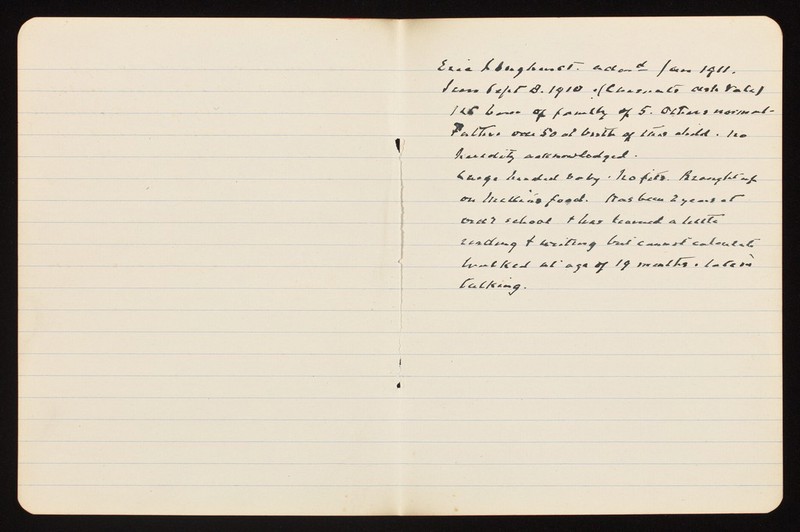 Eric admd Jan 1911.
Seen Sept 8. 1910
1st born of family of 5. Others normal.
Father over 50 at birth of this child. No
heredity acknowledged.
Large headed baby. No fits. Brought up
on food. Has been 2 years at
ordy school & has learned a little
reading & writing but cannot calculate
Walked at age of 19 months. Late in
talking.